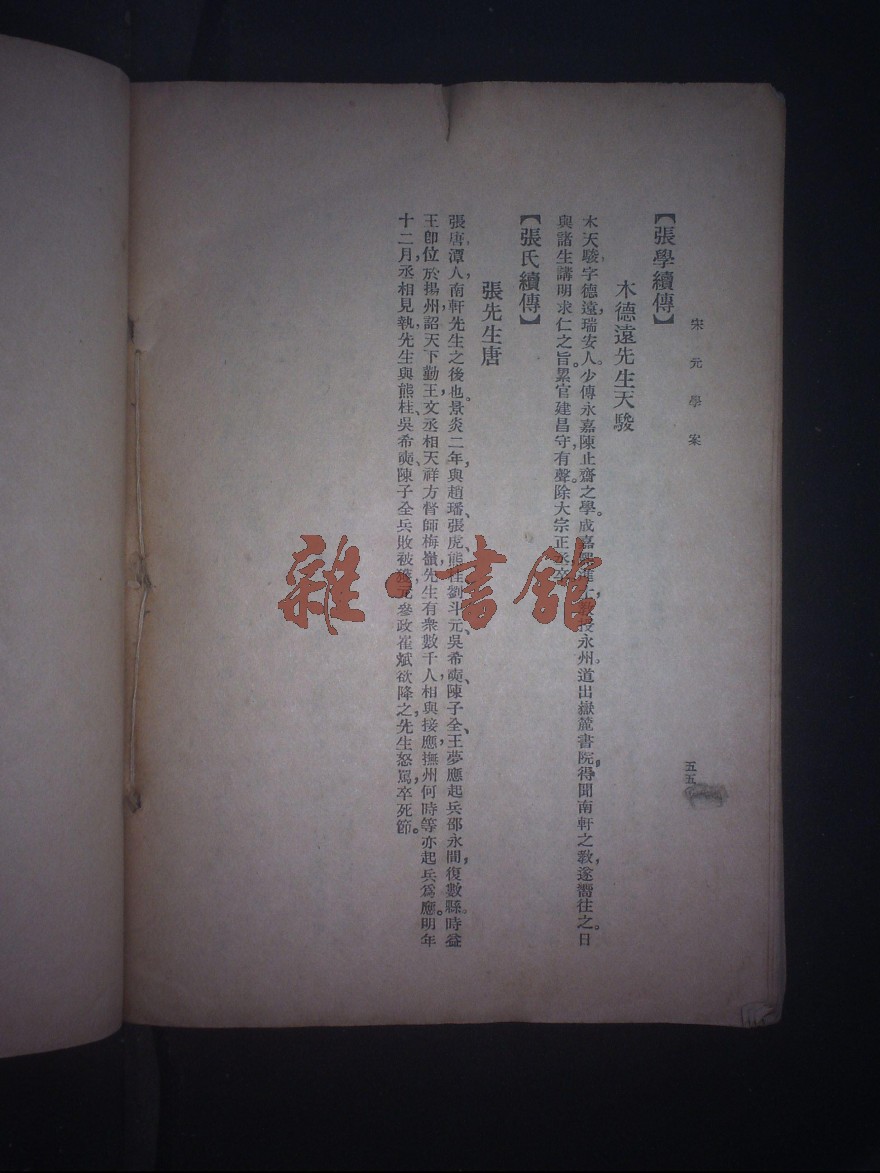 宋元學案
五五
【張學續傳】
木德遠先生天駿
木天駿，字德遠，瑞安人。少傳永嘉陳止齋之學。成嘉進永州。道出嶽麓書院，得聞南軒之教，遂嚮往之。日
與諸生講明求仁之旨。累官建昌守，有聲。除大宗正丞，卒。
【張氏續傳】
張先生唐
張唐，潭人，南軒先生之後也。景炎二年，與趙璠、張虎、熊桂、劉斗元、吳希奭、陳子全、王夢應起兵邵永間，復數縣。時益
王卽位於揚州，詔天下勤王，文丞相天祥方督師梅嶺，先生有衆數千人，相與接應，撫州何時等亦起兵爲應。明年
十二月，丞相見執，先生與熊桂、吳希奭、陳子全兵敗被獲，元參政崔斌欲降之，先生怒罵，卒死節。
雜·書館